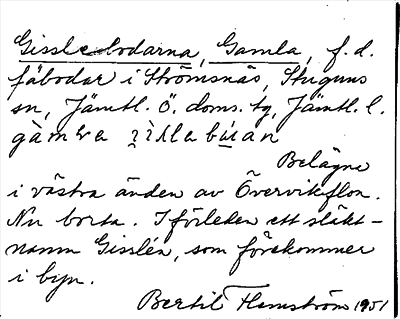 Gisslebodarna, Gamla, f.d.
fäbodar i Strömsnäs, Stuguns
sn, Jämtl. ö. doms. tg, Jämtl. l.
Belägne
i västra änden av Överviksflon.
Nu borta. I förleden ett släkt-
namn Gisslén, som förekommer
i byn.
Bertil Flemström 1951